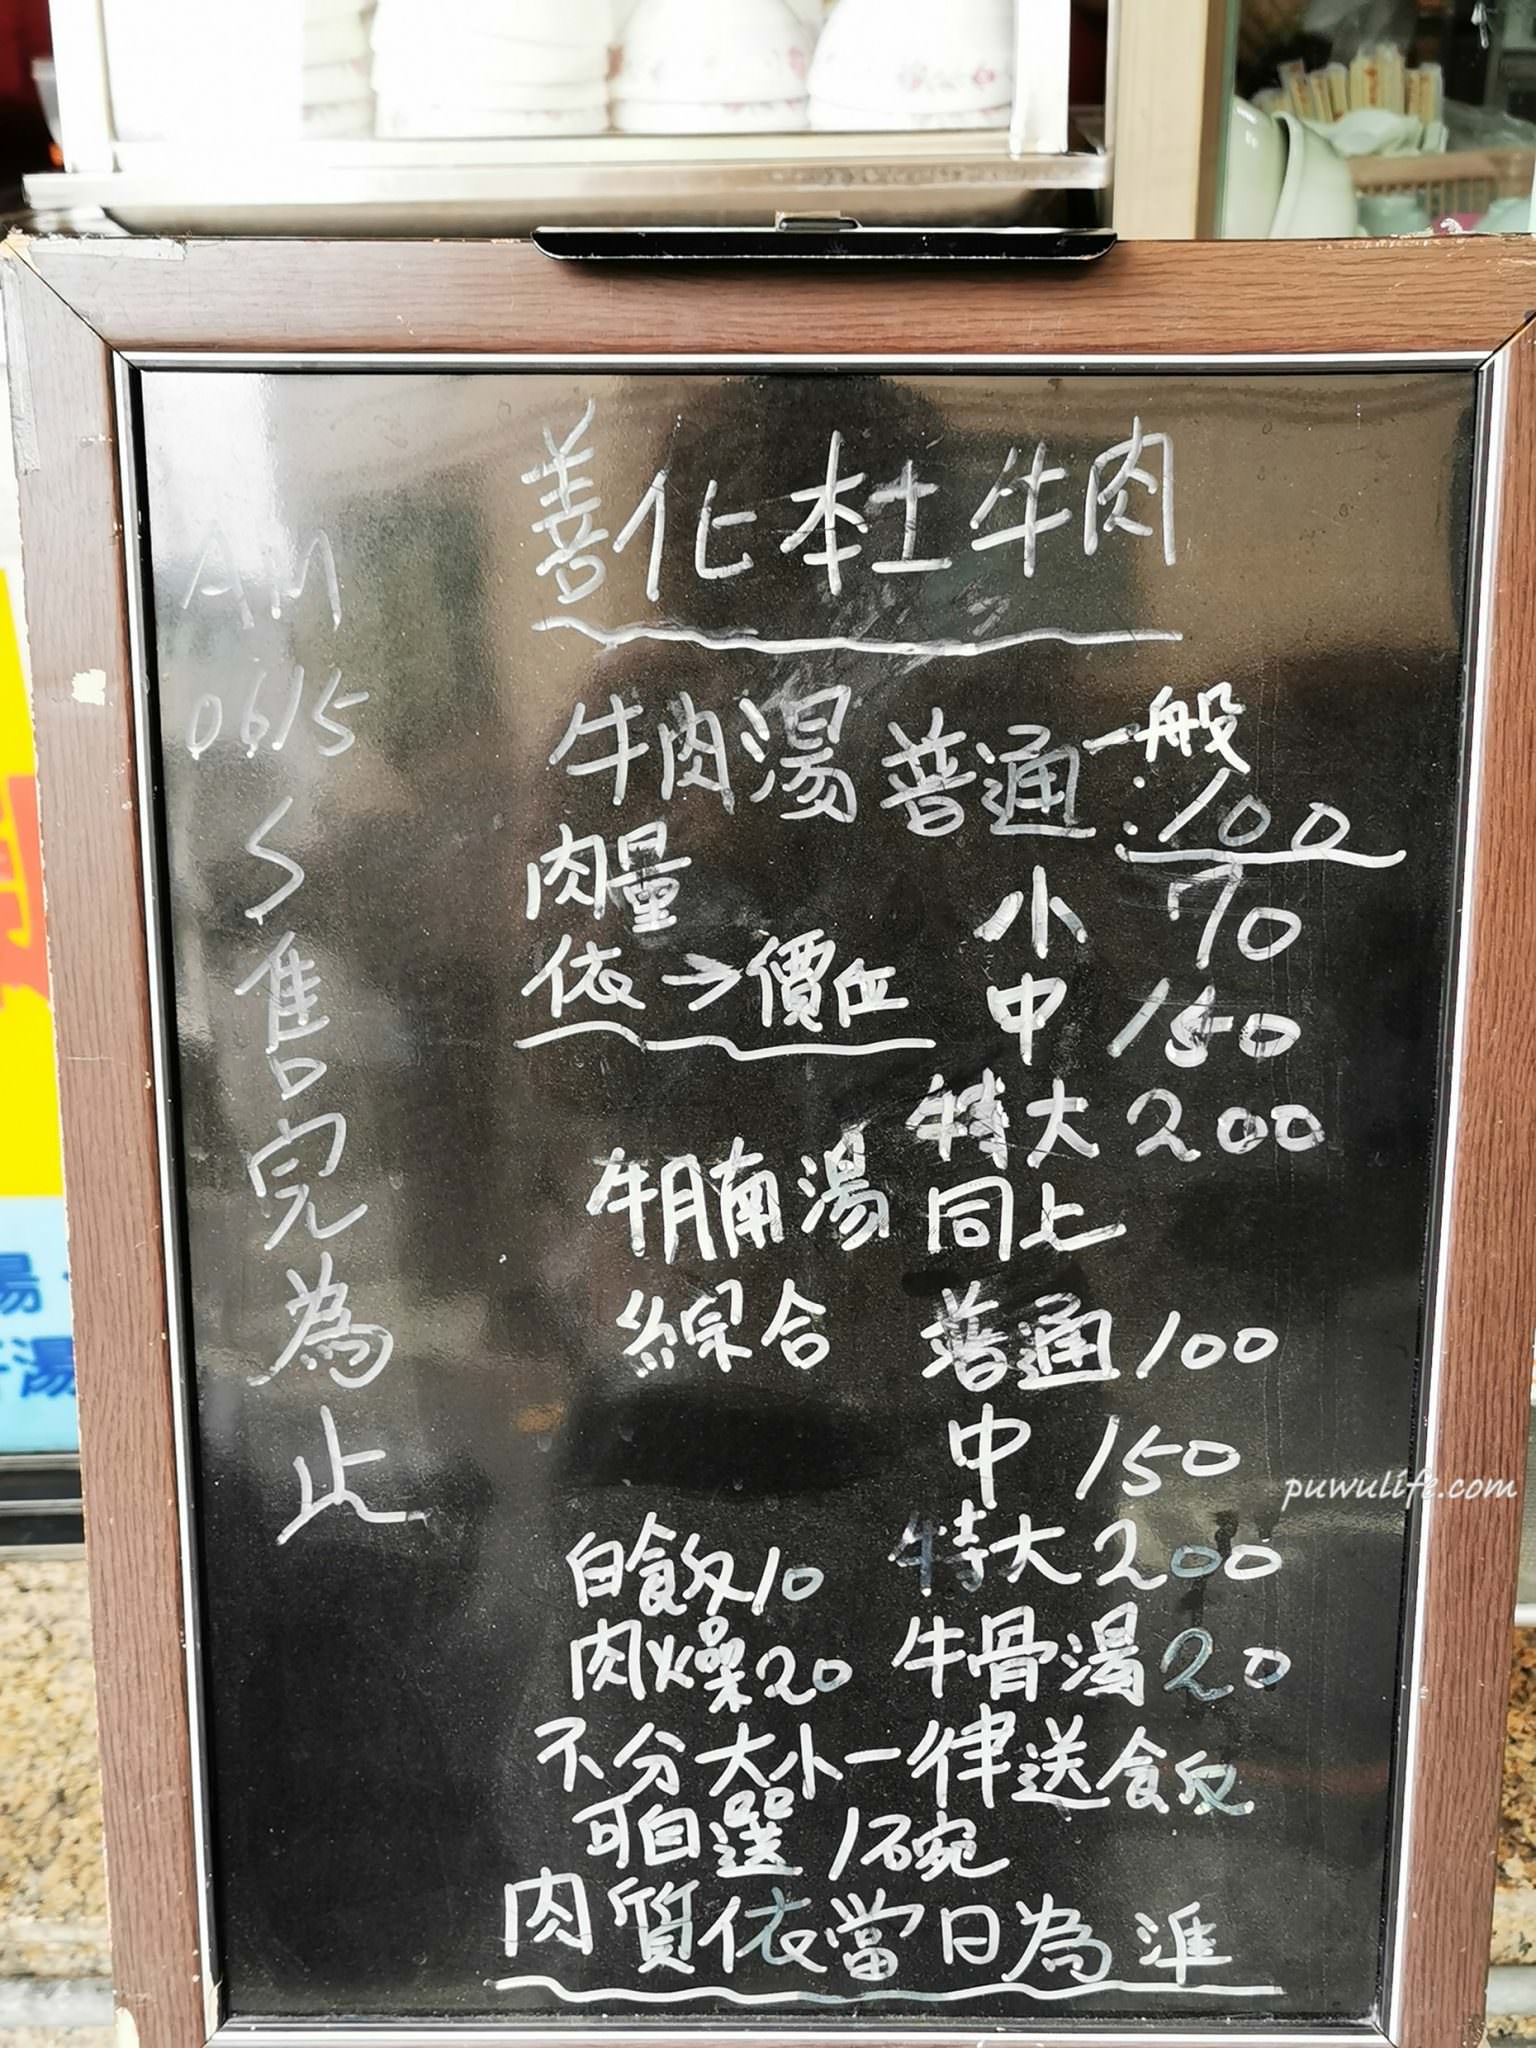 善化本土牛肉
AM
0615
〜
售
完
為
止
牛肉湯 普通 一般:100
肉量 小 70
依→價位 中 150
特大 200
牛腩湯 同上
綜合 普通 100
中 150
特大 200
白飯10
肉燥20 牛骨湯20
不分大小一律送飯
可自選1碗
肉質依當日為準
puwulife.com
湯
湯